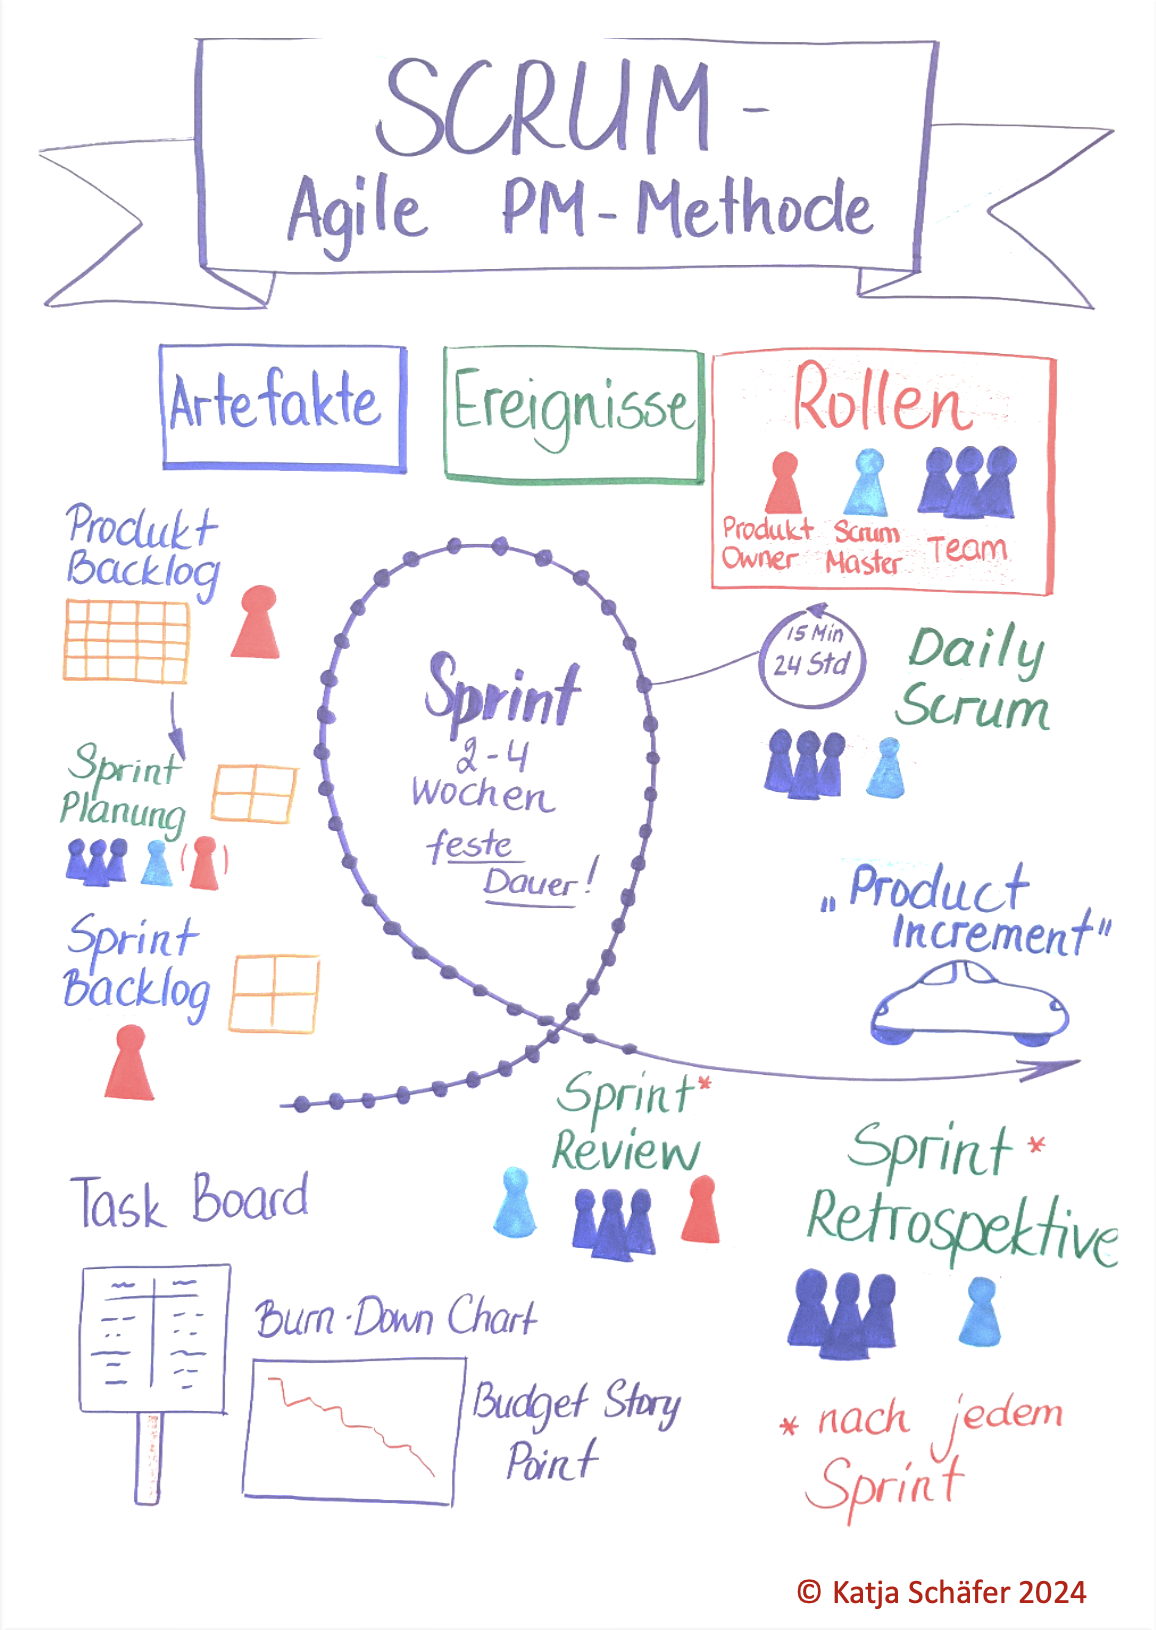 SCRUM -
Agile PM-Methode
Artefakte
Ereignisse
Rollen
Produkt
Owner
Scrum
Master
Team
Produkt
Backlog
Sprint
Planung
Sprint
Backlog
Sprint
2-4
Wochen
feste
Dauer!
15 Min
24 Std
Daily
Scrum
„Product
Increment"
Sprint*
Review
Sprint*
Retrospektive
Task Board
Burn-Down Chart
Budget Story
Point
* nach jedem
Sprint
© Katja Schäfer 2024